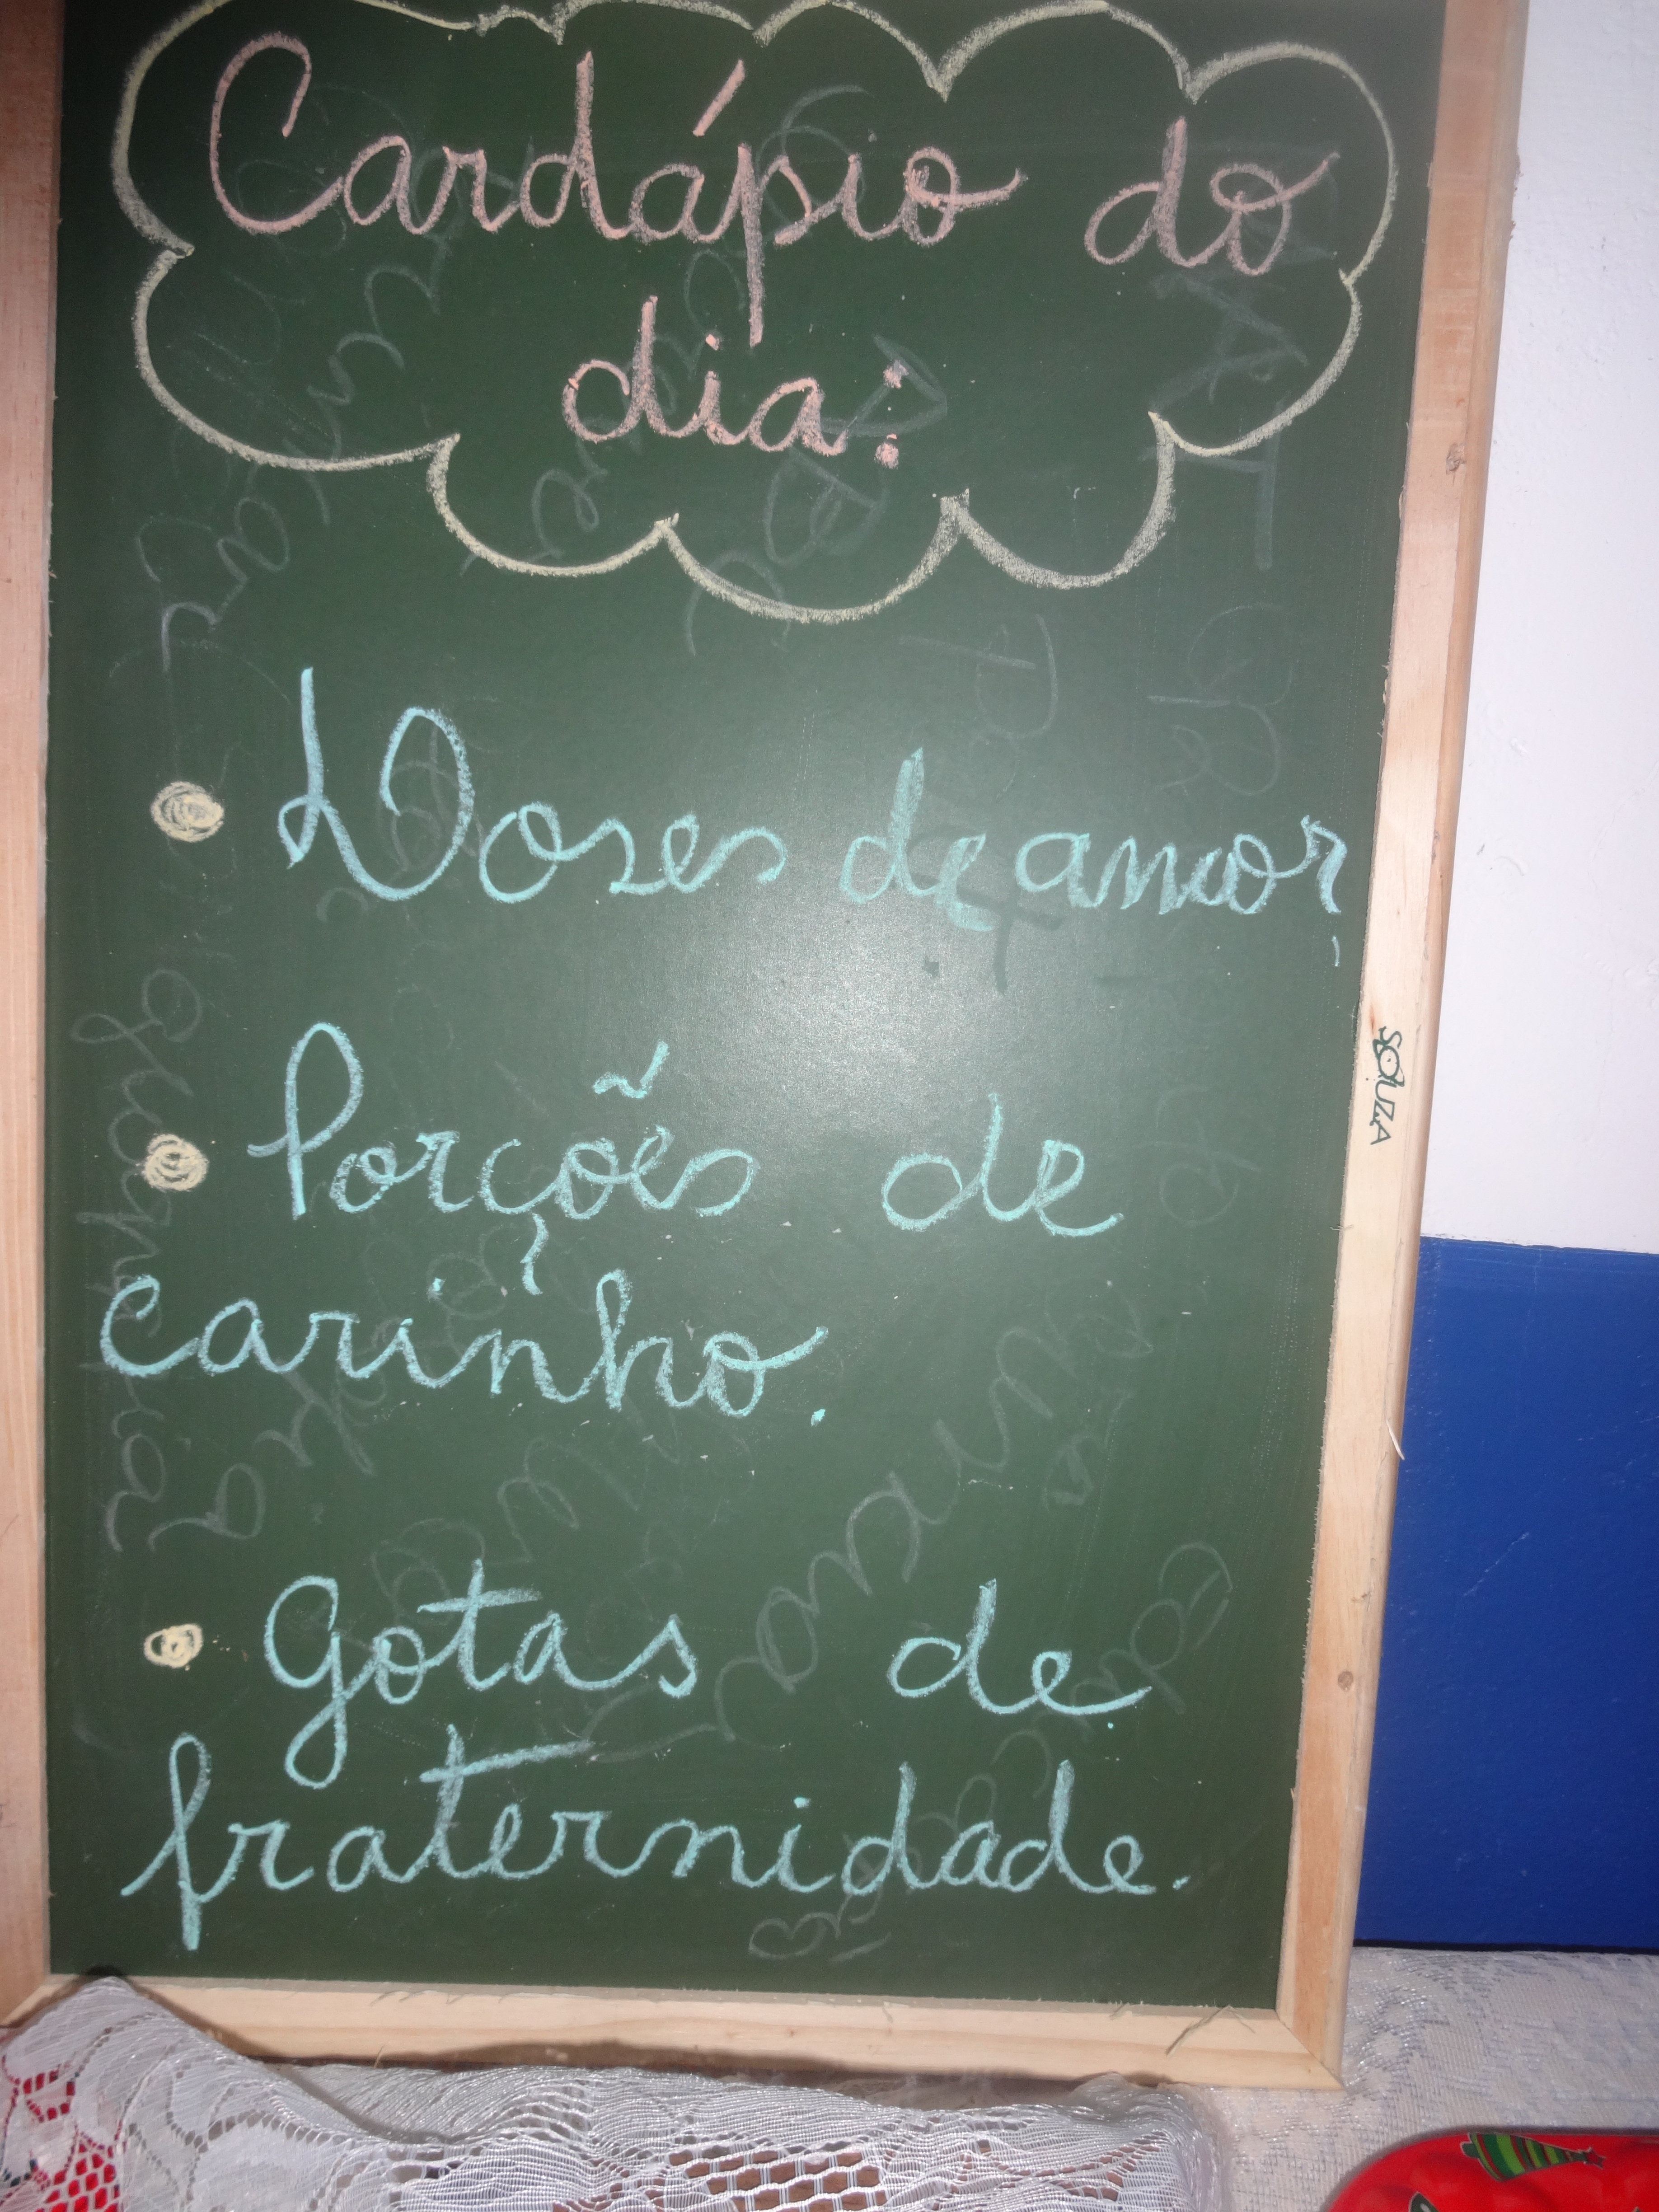 Cardápio do
dia:
• Doses de amor,
• Porções de
carinho.
• Gotas de
fraternidade.
SOUZA